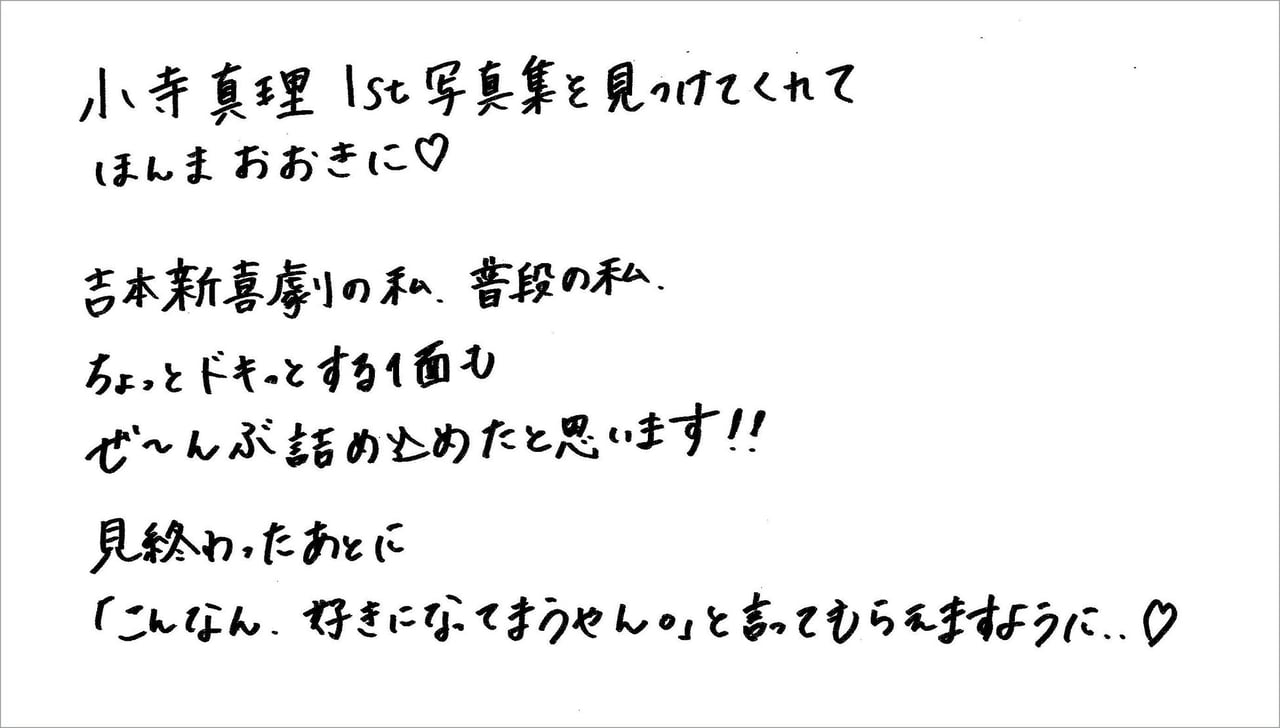 小寺真理 1st写真集を見つけてくれて
ほんまおおきに♡
吉本新喜劇の私、普段の私、
ちょっとドキっとする1面も
ぜ〜んぶ詰め込めたと思います!!
見終わったあとに
「こんなん、好きになってまうやん。」と言ってもらえますように..♡